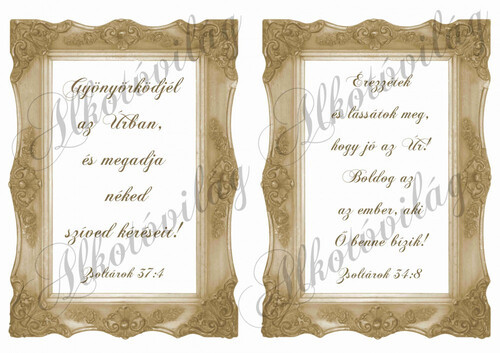 Gyönyörködjél
az Úrban,
és megadja
néked
szíved kéréseit!
Zsoltárok 37:4
Érezzétek
és lássátok meg,
hogy jó az Úr!
Boldog az
az ember, aki
Ő benne bízik!
Zsoltárok 34:8
Alkotóvilág
Alkotóvilág
Alkotóvilág
Alkotóvilág